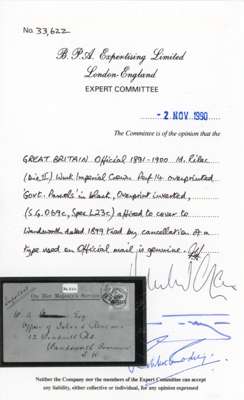 No. 33,622
B. P. A. Expertising Limited
London-England
EXPERT COMMITTEE
- 2 NOV 1990
The Committee is of the opinion that the
GREAT BRITAIN Official 1891-1900 1d. Lilac
(Die II) Wmk Imperial Crown Perf 14 overprinted
'Govt. Parcels' in black, Overprint inverted,
(S.G. 069c, Spec L23c) affixed to cover to
Wandsworth dated 1899 tied by cancellation of a
type used on Official mail is genuine.
On Her Majesty's Service
Office of
12
Wandsworth Common
S. W.
Neither the Company nor the members of the Expert Committee can accept
any liability, either collective or individual, for any opinion expressed